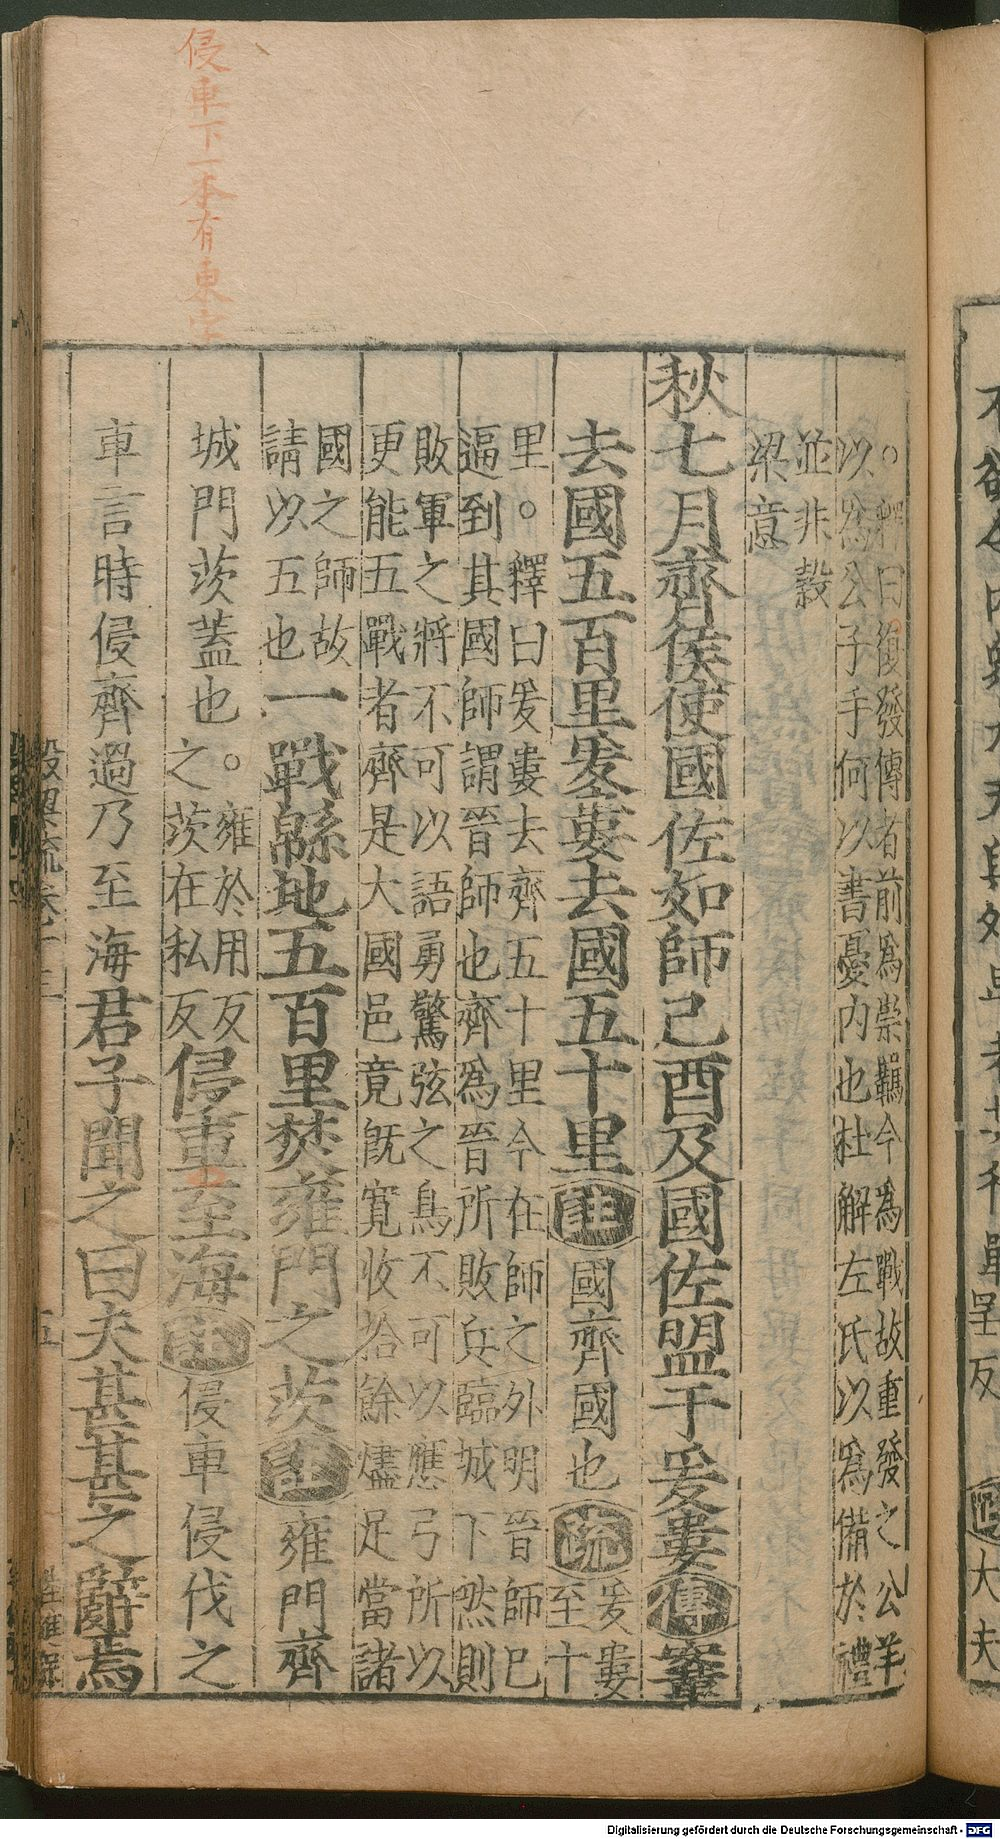 侵車下一本有東字
○釋曰復發傳者前爲崇𩍐今爲戰故重發之公羊
以爲公子手何以書憂內也杜解左氏以爲備於禮
並非穀
梁意
秋七月齊侯使國佐如師己酉及國佐盟于爰婁傳鞌
去國五百里爰婁去國五十里註國齊國也疏爰婁
至十
里○釋曰爰婁去齊五十里今在師之外明晉師已
逼到其國師謂晉師也齊爲晉所敗兵臨城下然則
敗軍之將不可以語勇驚弦之鳥不可以應弓所以
更能五戰者齊是大國邑竟旣寬收拾餘燼足當諸
國之師故
請以五也一戰緜地五百里焚雍門之茨註雍門齊
城門茨蓋也○雍於用反
之茨在私反侵車至海註侵車侵伐之
車言時侵齊過乃至海君子聞之曰夫甚甚之辭焉
穀梁疏卷十三
五
不欲令內與大夫
大夫
Digitalisierung gefördert durch die Deutsche Forschungsgemeinschaft - DFG